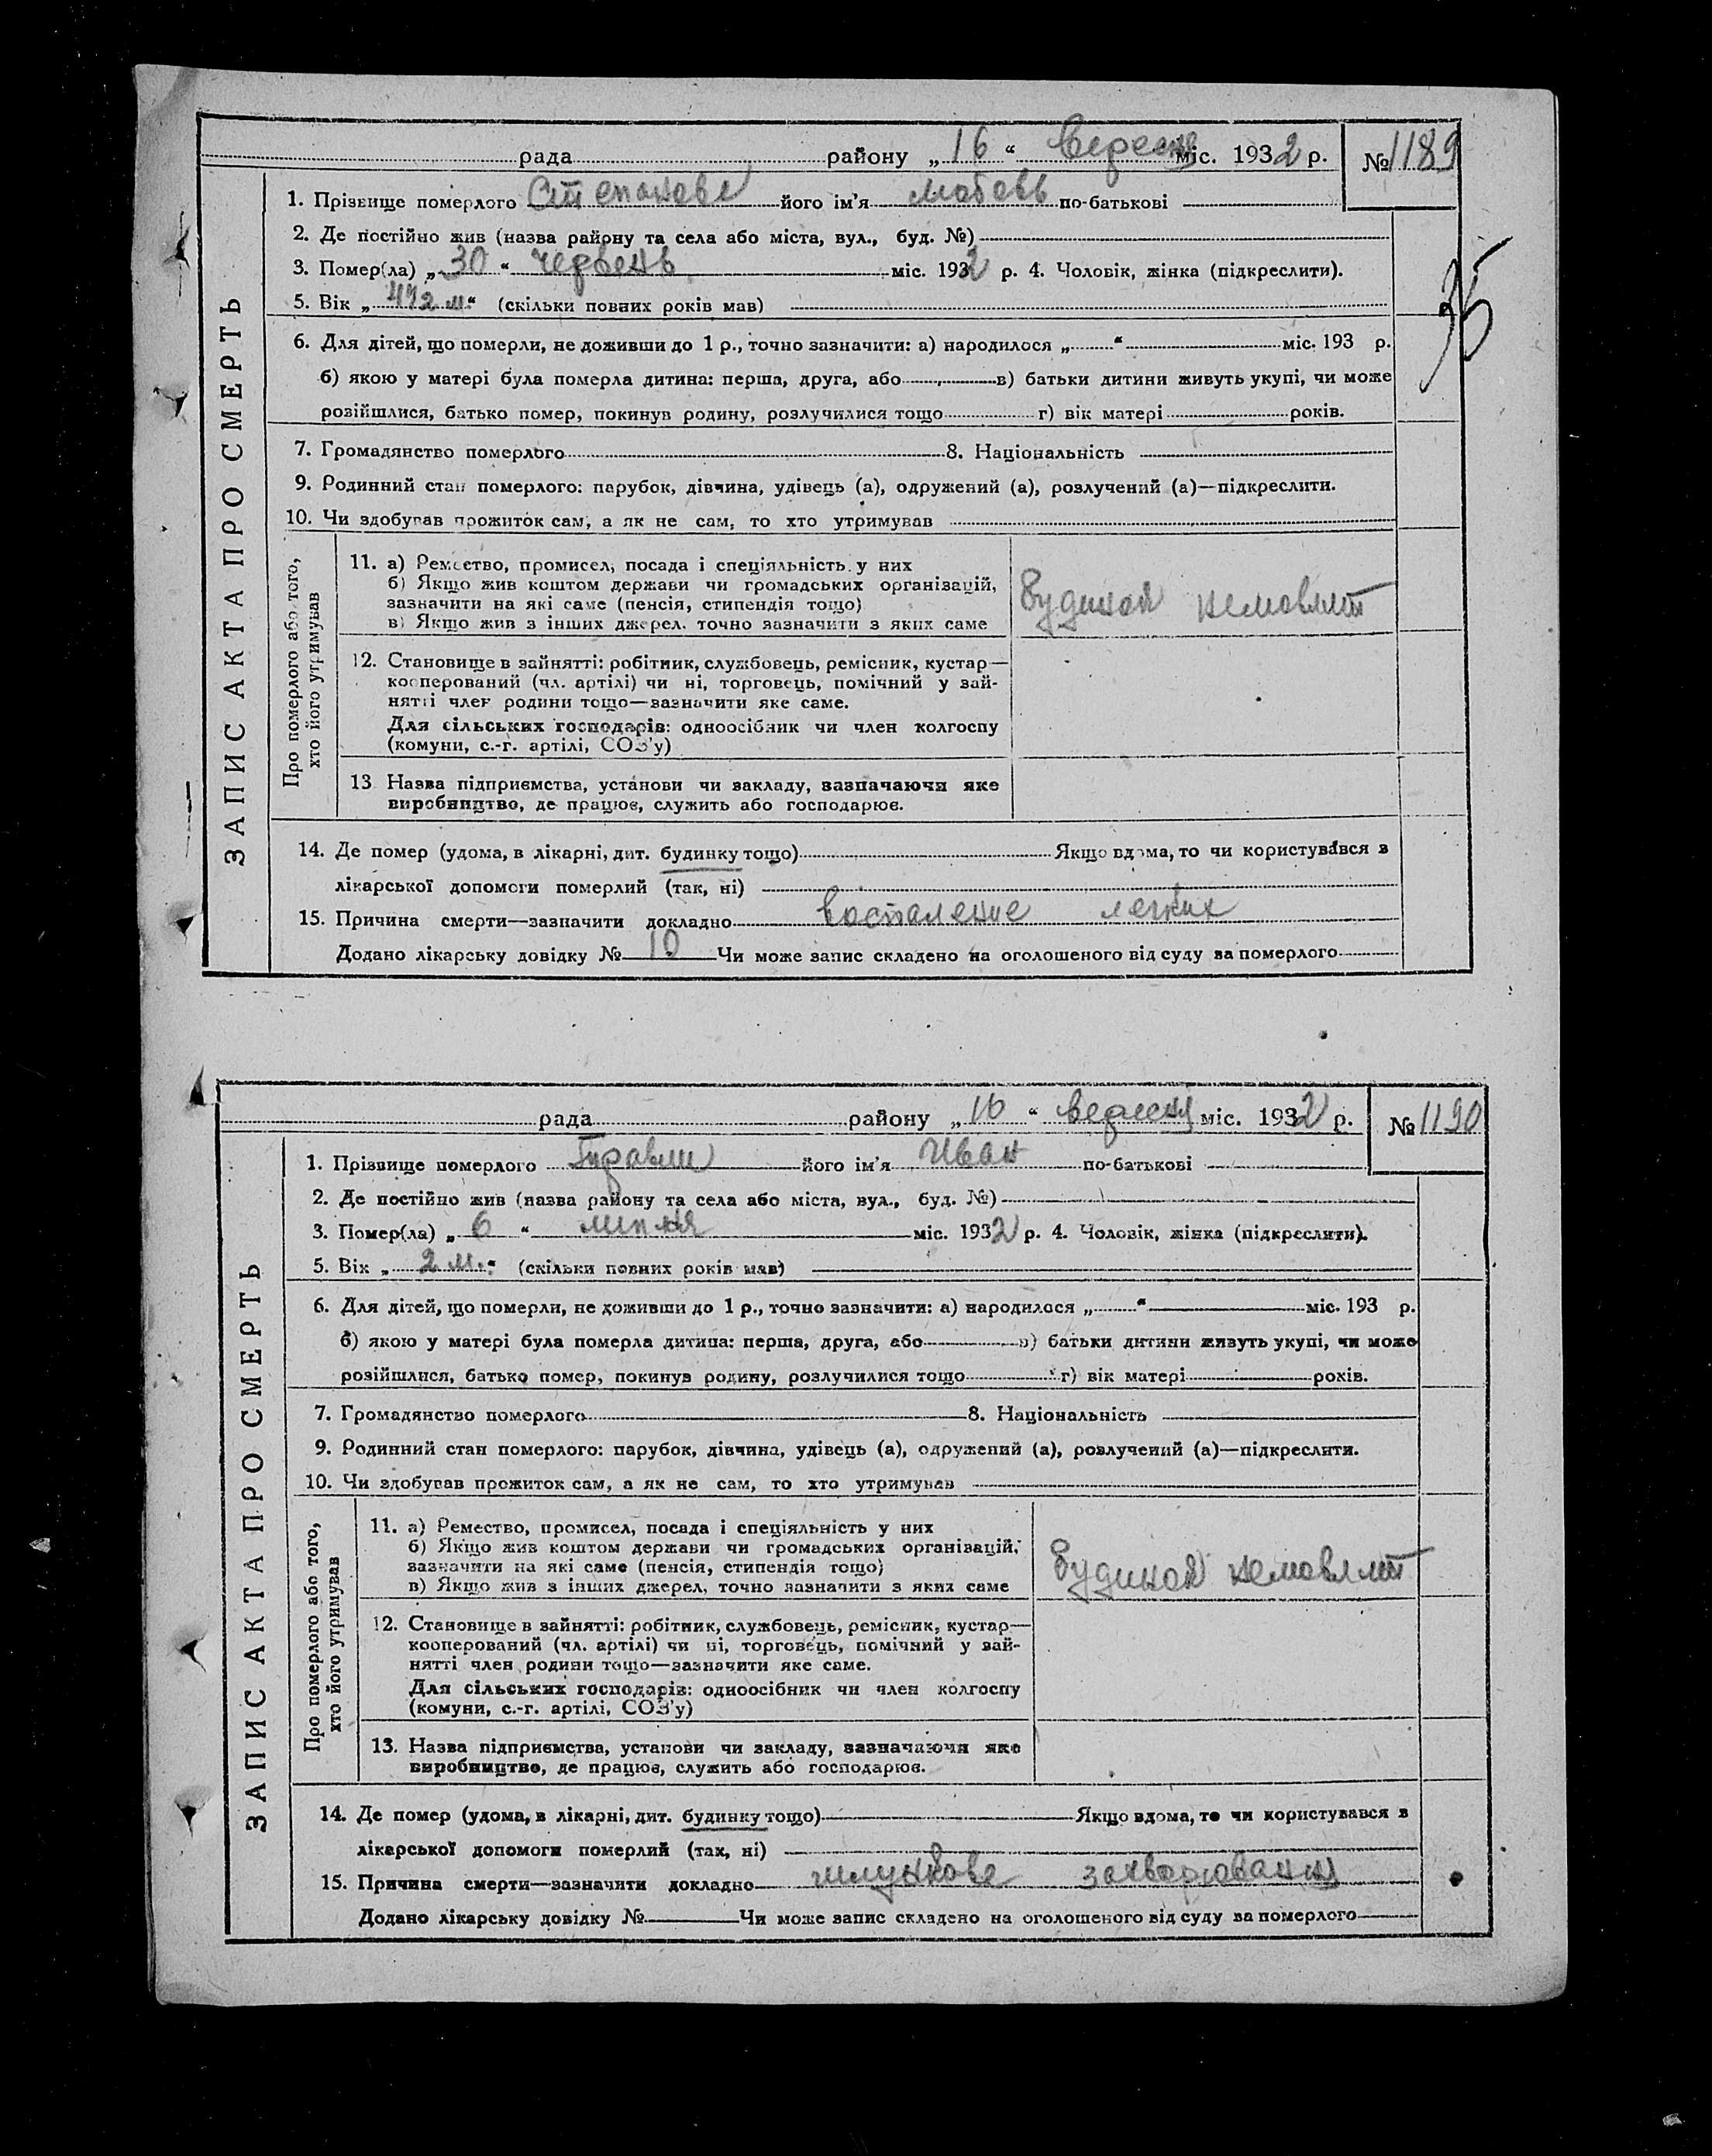 рада району „16“ вересня міс. 1932 р. № 1189
1. Прізвище померлого Степанова його ім'я Любовь по-батькові
2. Де постійно жив (назва району та села або міста, вул., буд. №)
3. Помер(ла) „30“ червень міс. 1932 р. 4. Чоловік, жінка (підкреслити).
5. Вік „ м.“ (скільки повних років мав)
35
6. Для дітей, що померли, не доживши до 1 р., точно зазначити: а) народилося „ “ міс. 193 р.
б) якою у матері була померла дитина: перша, друга, або в) батьки дитини живуть укупі, чи може
розійшлися, батько помер, покинув родину, розлучилися тощо г) вік матері років.
7. Громадянство померлого 8. Національність
9. Родинний стан померлого: парубок, дівчина, удівець (а), одружений (а), розлучений (а)—підкреслити.
10. Чи здобував прожиток сам, а як не сам, то хто утримував
ЗАПИС АКТА ПРО СМЕРТЬ
Про померлого або того, хто його утримував
11. а) Ремество, промисел, посада і спеціяльність у них
б) Якщо жив коштом держави чи громадських організацій,
зазначити на які саме (пенсія, стипендія тощо)
в) Якщо жив з інших джерел, точно зазначити з яких саме
Будинок немовлят
12. Становище в зайнятті: робітник, службовець, ремісник, кустар—
кооперований (чл. артілі) чи ні, торговець, помічний у зай-
нятті член родини тощо—зазначити яке саме.
Для сільських господарів: одноосібник чи член колгоспу
(комуни, с.-г. артілі, СОЗ'у)
13 Назва підприємства, установи чи закладу, зазначаючи яке
виробництво, де працює, служить або господарює.
14. Де помер (удома, в лікарні, дит. будинку тощо) Якщо вдома, то чи користувався в
лікарської допомоги померлий (так, ні)
15. Причина смерти—зазначити докладно воспаление легких
Додано лікарську довідку № 10 Чи може запис складено на оголошеного від суду за померлого
рада району „16“ вересня міс. 1932 р. № 1190
1. Прізвище померлого його ім'я Иван по-батькові
2. Де постійно жив (назва району та села або міста, вул., буд. №)
3. Помер(ла) „6“ липня міс. 1932 р. 4. Чоловік, жінка (підкреслити).
5. Вік „2 м.“ (скільки повних років мав)
6. Для дітей, що померли, не доживши до 1 р., точно зазначити: а) народилося „ “ міс. 193 р.
б) якою у матері була померла дитина: перша, друга, або в) батьки дитини живуть укупі, чи може
розійшлися, батько помер, покинув родину, розлучилися тощо г) вік матері років.
7. Громадянство померлого 8. Національність
9. Родинний стан померлого: парубок, дівчина, удівець (а), одружений (а), розлучений (а)—підкреслити.
10. Чи здобував прожиток сам, а як не сам, то хто утримував
ЗАПИС АКТА ПРО СМЕРТЬ
Про померлого або того, хто його утримував
11. а) Ремество, промисел, посада і спеціяльність у них
б) Якщо жив коштом держави чи громадських організацій,
зазначити на які саме (пенсія, стипендія тощо)
в) Якщо жив з інших джерел, точно зазначити з яких саме
Будинок немовлят
12. Становище в зайнятті: робітник, службовець, ремісник, кустар—
кооперований (чл. артілі) чи ні, торговець, помічний у зай-
нятті член родини тощо—зазначити яке саме.
Для сільських господарів: одноосібник чи член колгоспу
(комуни, с.-г. артілі, СОЗ'у)
13. Назва підприємства, установи чи закладу, зазначаючи яке
виробництво, де працює, служить або господарює.
14. Де помер (удома, в лікарні, дит. будинку тощо) Якщо вдома, то чи користувався в
лікарської допомоги померлий (так, ні)
15. Причина смерти—зазначити докладно шлункове захворювання
Додано лікарську довідку № Чи може запис складено на оголошеного від суду за померлого